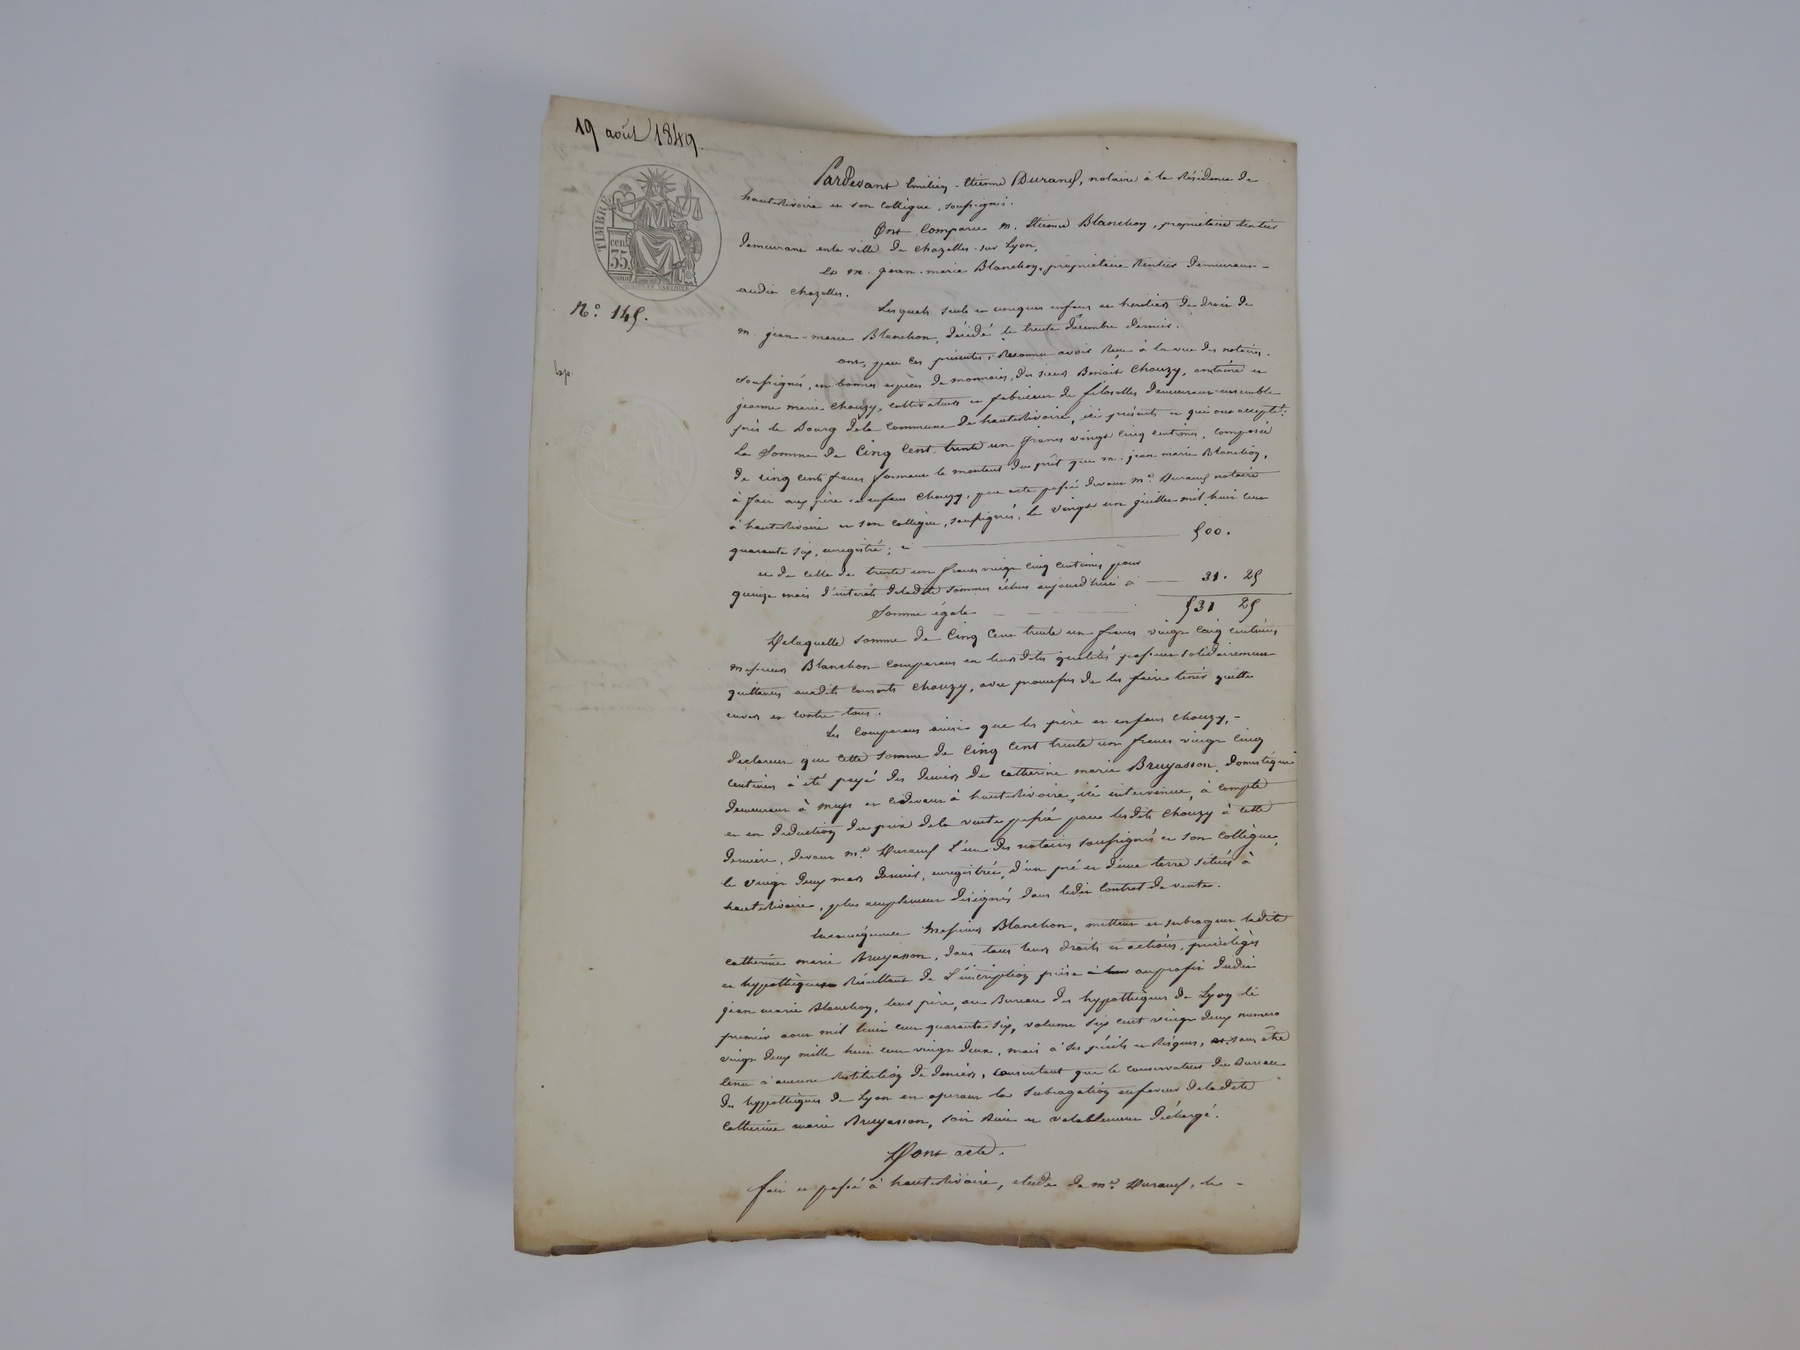 19 août 1849.
TIMBRE
cen.
35.
N.° 145.
Pardevant Emilien-Etienne Durand, notaire à la Résidence de
hauterivoire et son collègue, soussignés.
Ont Comparu m. Etienne Blanchon, propriétaire rentier
demeurant en la ville de Chazelles-sur Lyon,
Et m. jean-marie Blanchon, propriétaire Rentier demeurant
audit Chazelles.
Lesquels seuls et uniques enfans et héritiers de droit de
m. jean-marie Blanchon, décédé le trente décembre dernier.
ont, par ces présentes, Reconnu avoir Reçu à la vue des notaires
soussignés, en bonnes espèces de monnaies, des sieurs Benoit Chouzy, et
jeanne marie Chouzy, cultivateurs et de filoselles demeurant ensemble
près le Bourg de la Commune de hauterivoire, ici présents et qui ont accepté:
La Somme de Cinq Cent trente un francs vingt cinq centimes, composée
de cinq cents francs formant le montant du prêt que m. jean marie Blanchon,
à fait aux père et enfans Chouzy, par acte passé devant m.e Durand notaire
à hauterivoire et son collègue, soussignés, le vingt un juillet mil huit cent
quarante six, enregistré; ci 500.
et de celle de trente un francs vingt cinq centimes pour
quinze mois d'intérêts de ladite somme échus aujourd'hui ci 31. 25
Somme égale 531 25
Delaquelle somme de Cinq Cent trente un francs vingt cinq centimes
messieurs Blanchon comparans en leursdites qualités passent solidairement
quittances auxdits consorts Chouzy, avec promesses de les faire tenir quitte
envers et contre tous.
Les Comparans ainsi que les père et enfans Chouzy,
déclarent que cette somme de Cinq Cent trente un francs vingt cinq
centimes à été payé des deniers de catherine marie Bruyasson, domestique
demeurant à mays et cidevant à hauterivoire, ici intervenue, à compte
et en déduction du prix de la vente passée par lesdits Chouzy à cette
dernière, devant m.e Durand l'un des notaires soussignés et son collègue,
le vingt deux mars dernier, enregistrée, d'un pré et d'une terre situés à
hauterivoire, plus amplement désignés dans ledit Contrat de vente.
En conséquence Messieurs Blanchon, mettent et subrogent ladite
catherine marie Bruyasson, dans tous leurs droits et actions, privilèges
et hypothèques Résultant de l'inscription prise à au profit dudit
jean marie Blanchon, leur père, au Bureau des hypothèques de Lyon le
premier aout mil huit cent quarante six, volume six cent vingt deux numero
vingt deux mille huit cent vingt deux, mais à ses périls et Risques, et sans être
tenu à aucune Restitution de deniers, consentant que le conservateur du Bureau
des hypothèques de Lyon en opérant la Subrogation en faveur de ladite
Catherine marie Bruyasson, soit bien et valablement déchargé.
Dont acte.
fait et passé à hauterivoire, etude de m.e Durand, le